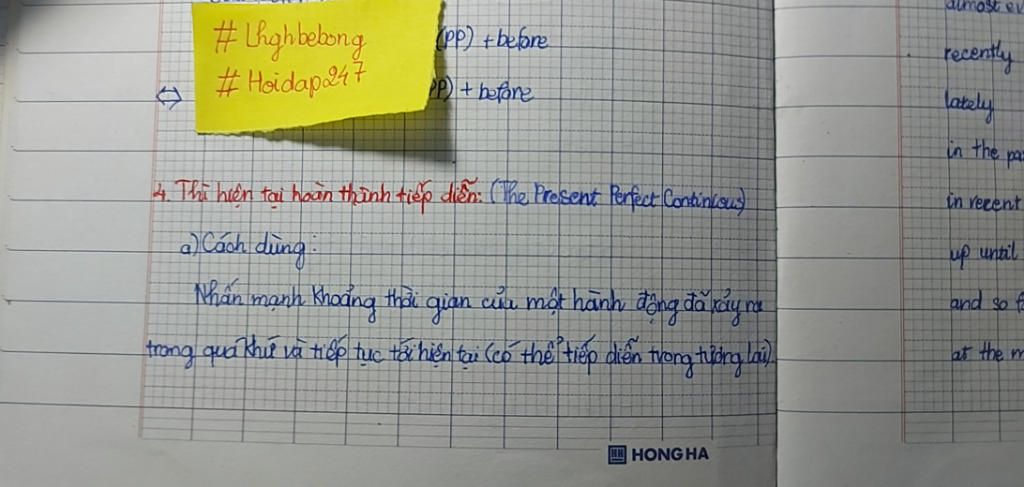 # Lhghbebong
# Hoidap247
(PP) + before
⇔ PP) + before
4. Thì hiện tại hoàn thành tiếp diễn: (The Present Perfect Continious)
a) Cách dùng:
Nhấn mạnh khoảng thời gian của một hành động đã xảy ra
trong quá khứ và tiếp tục tới hiện tại (có thể tiếp diễn trong tương lai).
HONG HA
almost
recently
lately
in the
in recent
up until
and so
at the